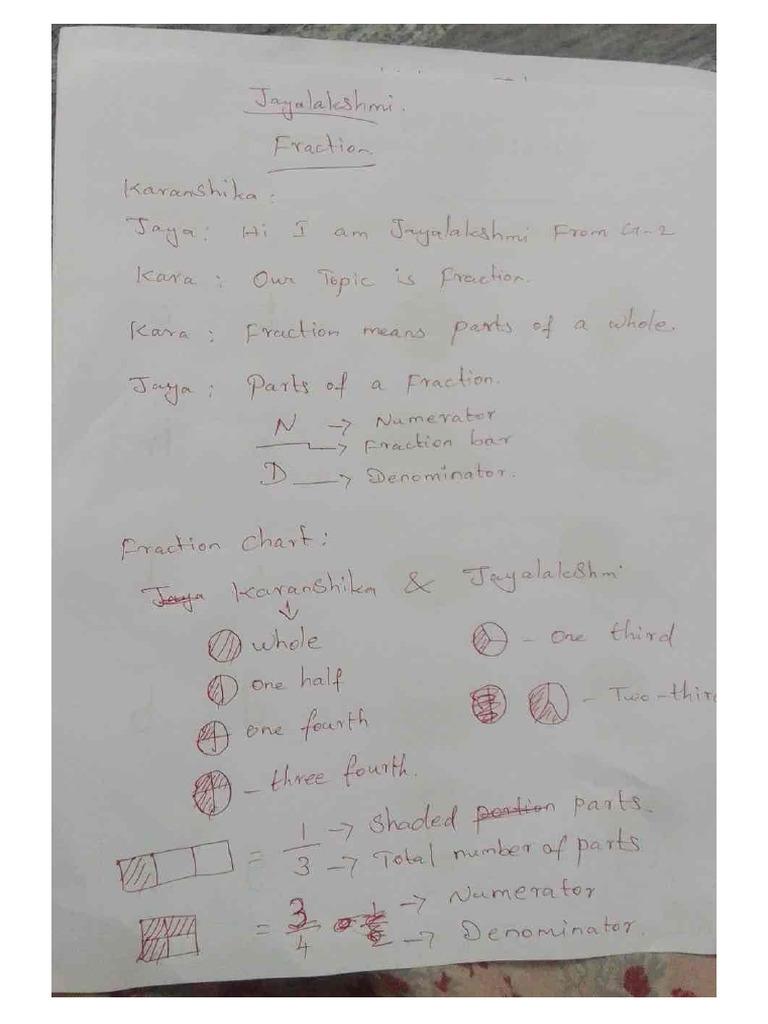 Jayalakshmi.
Fraction
Karanshika:
Jaya: Hi I am Jayalakshmi From G-2
Kara: Our Topic is Fraction.
Kara: Fraction means parts of a whole.
Jaya: Parts of a Fraction.
N → Numerator
→ Fraction bar
D → Denominator.
Fraction Chart:
Karanshika & Jayalakshmi
whole
- One third
one half
one fourth
- Two-third
- three fourth.
= 1/3 → Shaded portion parts.
→ Total number of parts
= 3/4 → Numerator
→ Denominator.